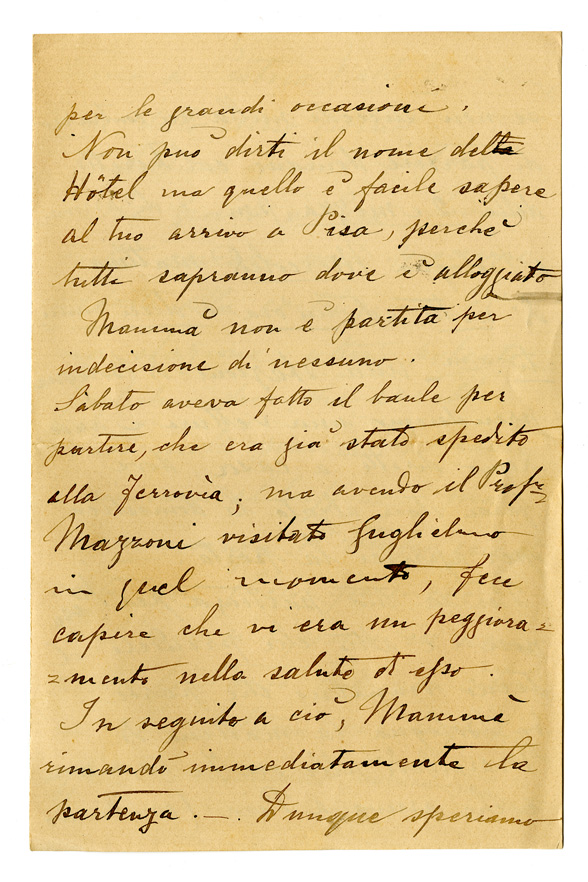 per le grandi occasione.
Non può dirti il nome del
Hôtel ma quello è facile sapere
al tuo arrivo a Pisa, perchè
tutti sapranno dove è alloggiato
Mammà non è partita per
indecisione di nessuno.
Sabato aveva fatto il baule per
partire, che era già stato spedito
alla ferrovia; ma avendo il Profr
Mazzoni visitato Guglielmo
in quel momento, fece
capire che vi era un peggiora=
=mento nella salute di esso.
In seguito a ciò, Mammà
rimandò immediatamente la
partenza. —. Dunque speriamo